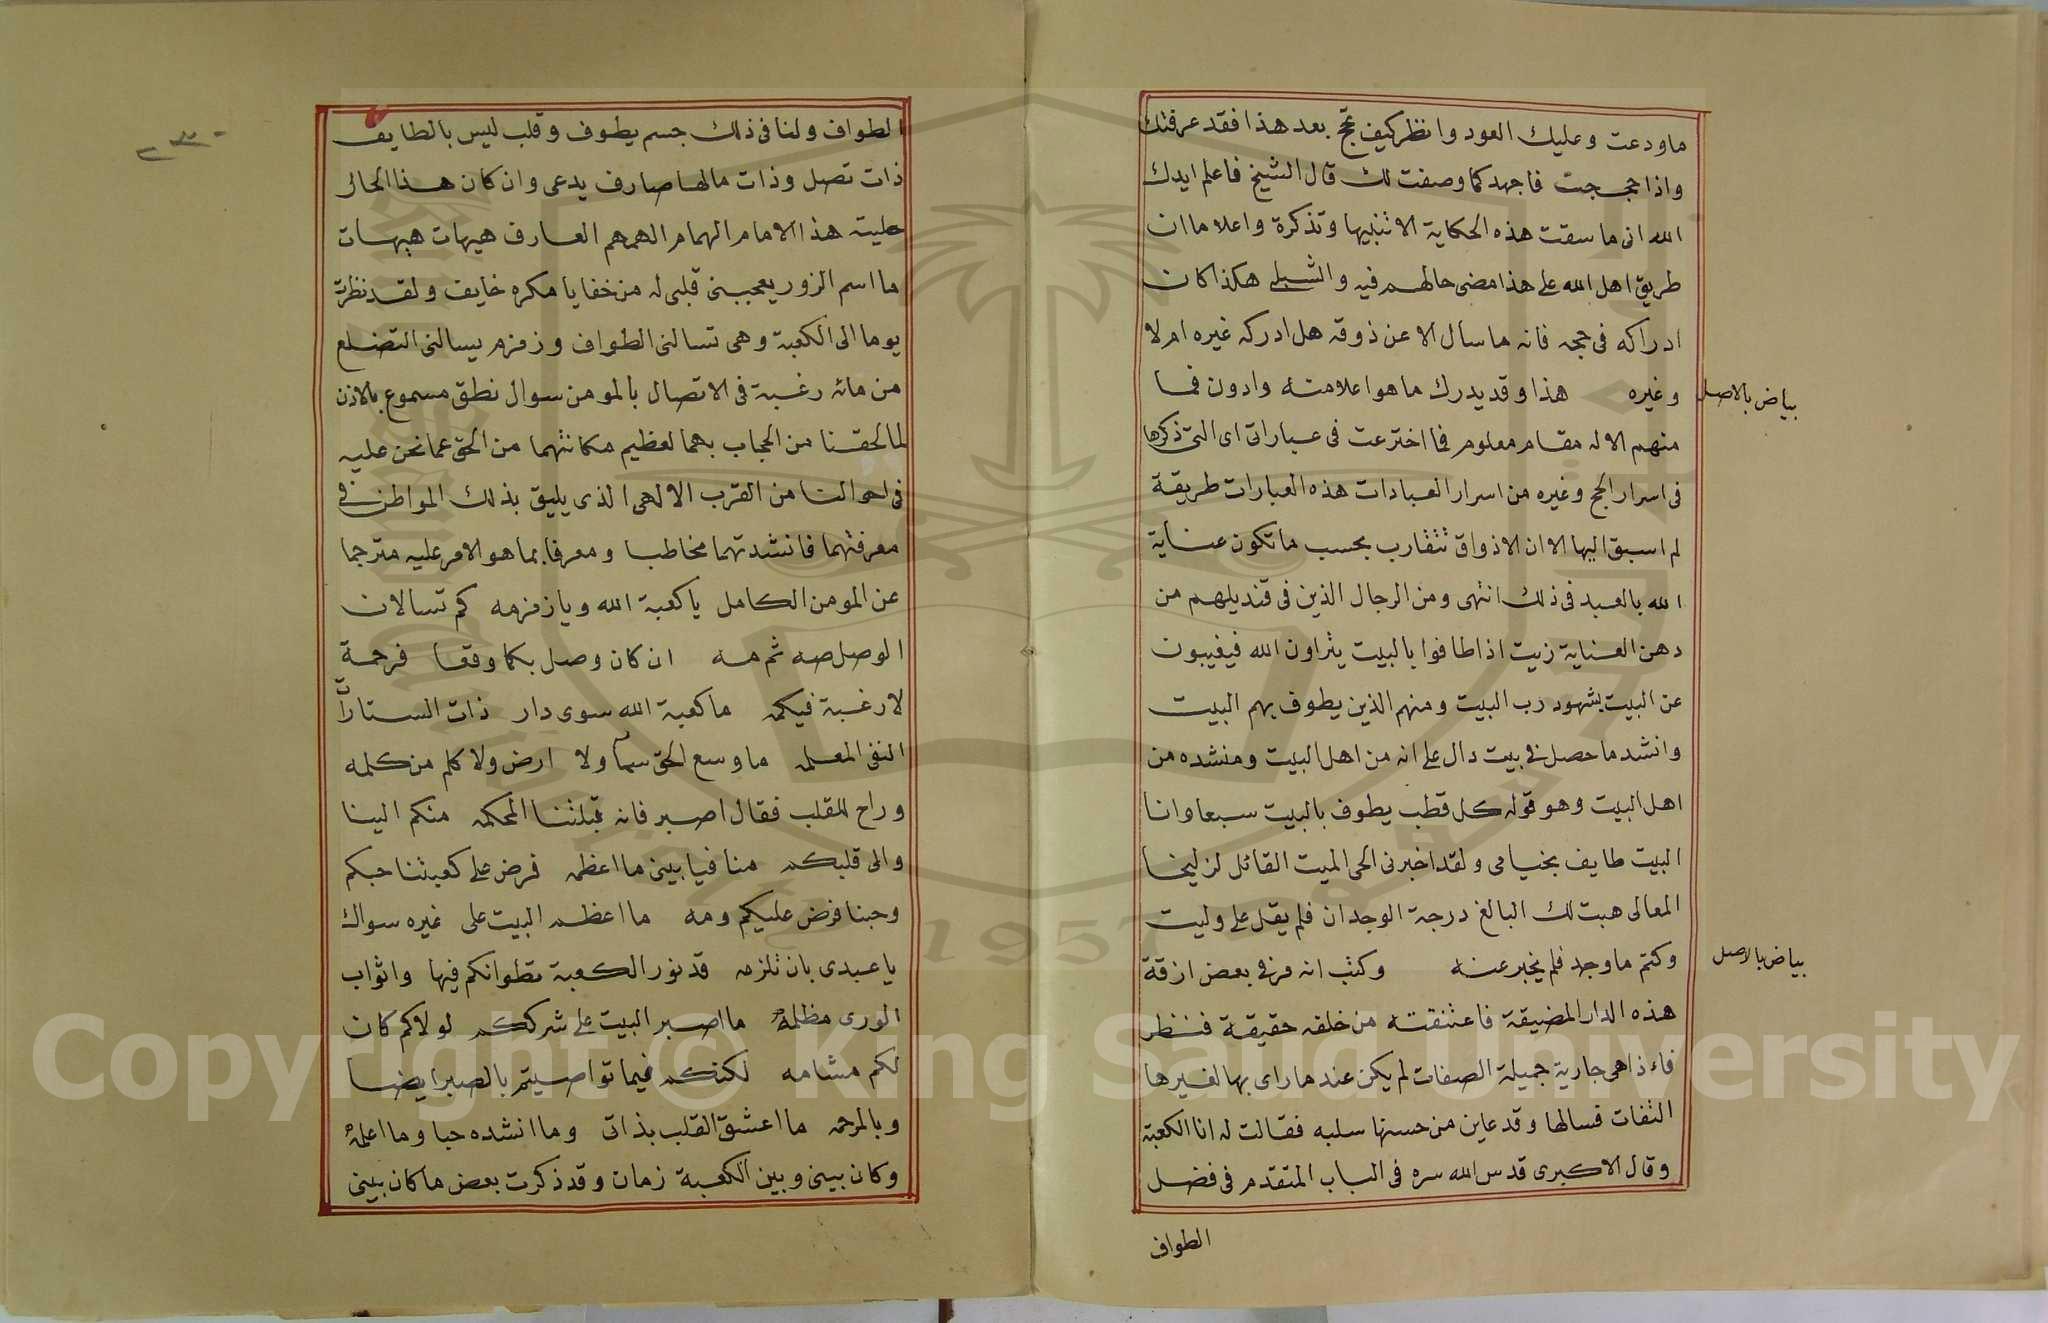 ماودعت وعليك العود وانظر كيف تحج بعد هذا فقد عرفتك
واذا حججت فاجهد كما وصفت لك قال الشيخ فاعلم ايدك
الله انى ما سقت هذه الحكاية الا تنبيها وتذكرة واعلاما ان
طريق اهل الله على هذا مضى حالهم فيه والشبلى هكذا كان
ادراكه فى حجه فانه ما سأل الا عن ذوقه هل ادركه غيره ام لا
وغيره هذا وقد يدرك ما هو اعلا منه وادون فما
بياض بالاصل
منهم الا له مقام معلوم فما اخترعت فى عباراتى اى التى ذكرها
فى اسرار الحج وغيره من اسرار العبادات هذه العبارات طريقة
لم اسبق اليها الا ان الاذواق تتقارب بحسب ما تكون عناية
الله بالعبد فى ذلك انتهى ومن الرجال الذين فى قنديلهم من
دهن العناية زيت اذا طافوا بالبيت يتراون الله فيغيبون
عن البيت بشهود رب البيت ومنهم الذين يطوف بهم البيت
وانشد ما حصل فى بيت دال على انه من اهل البيت ومنشده من
اهل البيت وهو قوله كل قطب يطوف بالبيت سبعا وانا
البيت طايف بخيامى ولقد اخبرنى الحى الميت القائل لزليخا
المعالى هيت لك البالغ درجة الوجدان فلم يقل على وليت
وكتم ما وجد فلم يخبر عنه وكتب انه مر فى بعض ازقة
بياض بالاصل
هذه الدار المضيقة فاعتنقته من خلفه حقيقة فنظر
فاءذا هى جارية جميلة الصفات لم يكن عند ما راى بها لغيرها
التفات فسالها وقد عاين من حسنها سلبه فقالت له انا الكعبة
وقال الاكبرى قدس الله سره فى الباب المتقدم فى فضل
الطواف
الطواف ولنا فى ذلك جسم يطوف وقلب ليس بالطايف
ذات تصل وذات مالها صارف يدعى وان كان هذا الحال
حليته هذا الامام الهمام الهمهم العارف هيهات هيهات
ما اسم الزور يعجبنى قلبى له من خفايا مكره خايف ولقد نظرت
يوما الى الكعبة وهى تسالنى الطواف وزمزم يسالنى التضلع
من مائه رغبة فى الاتصال بالمومن سوال نطق مسموع بالاذن
لما لحقنا من الحجاب بهما لعظيم مكانتهما من الحق عما نحن عليه
فى احوالنا من القرب الالهى الذى يليق بذلك المواطن فى
معرفتهما فانشدتهما مخاطبا ومعرفا بما هو الامر عليه مترجما
عن المومن الكامل يا كعبة الله ويا زمزمه كم تسالان
الوصل صه ثم مه ان كان وصل بكما وقفا فرحمة
لا رغبة فيكمه ما كعبة الله سوى دار ذات الستارات
النفى المعلمه ما وسع الحق سمآ ولا ارض ولا كلم من كلمه
وراح للقلب فقال اصبر فانه قبلتنا المحكمه منكم الينا
والى قلبكم منا فيا بينى ما اعظمه فرض على كعبتنا حبكم
وحبنا فرض عليكم ومه ما اعظم البيت على غيره سواك
يا عبدى بان تلزمه قد نور الكعبة تطوافكم فيها واثواب
الورى مظلمه ما اصبر البيت على شرككم لولاكم كان
لكم مشامه لكنكم فيما تواصيتم بالصبر ايضا
وبالمرحمه ما اعشق القلب بذاتى وما انشده حبا وما اعلمه
وكان بينى وبين الكعبة زمان وقد ذكرت بعض ما كان بينى
Copyright © King Saud University
1957